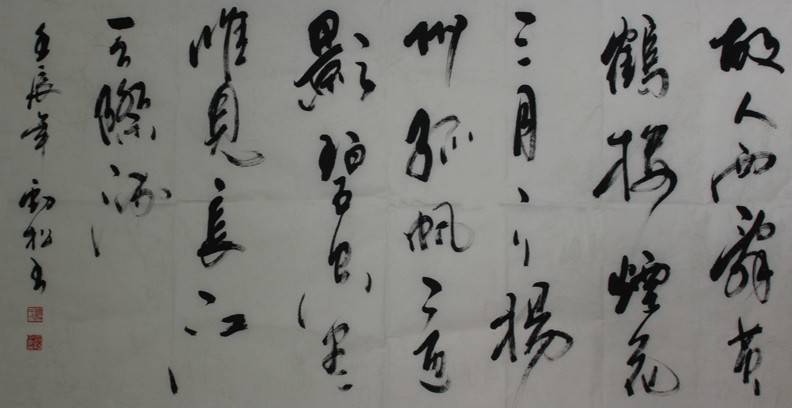 故人西辭黄
鶴樓煙花
三月下揚
州孤帆遠
影碧空盡
唯見長江
天際流
壬辰年 松書